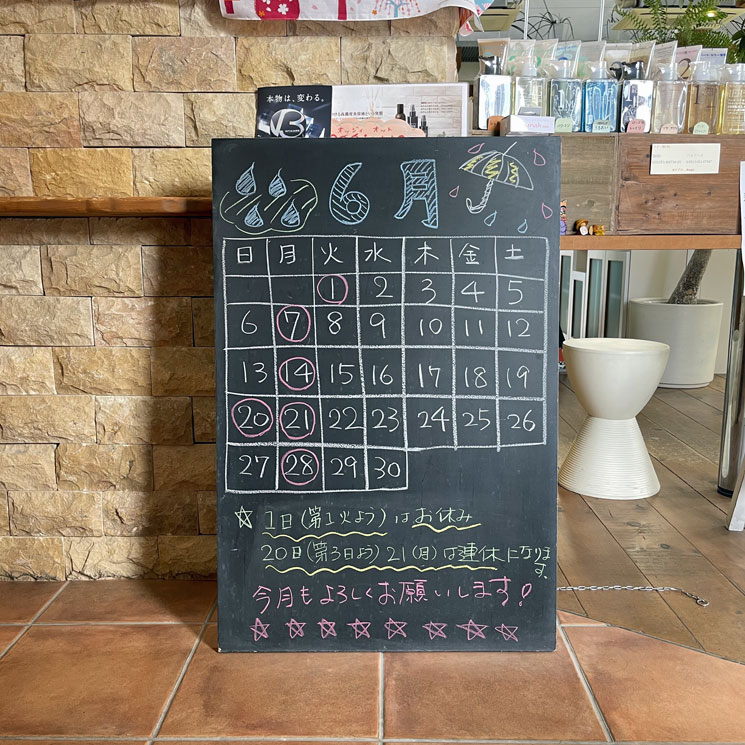 本物は、変わる。
V3
オッジィ オット
6月
日 月 火 水 木 金 土
1 2 3 4 5
6 7 8 9 10 11 12
13 14 15 16 17 18 19
20 21 22 23 24 25 26
27 28 29 30
☆ 1日(第1火よう)はお休み
20日(第3日よう)21(月)は連休になります。
今月もよろしくお願いします!